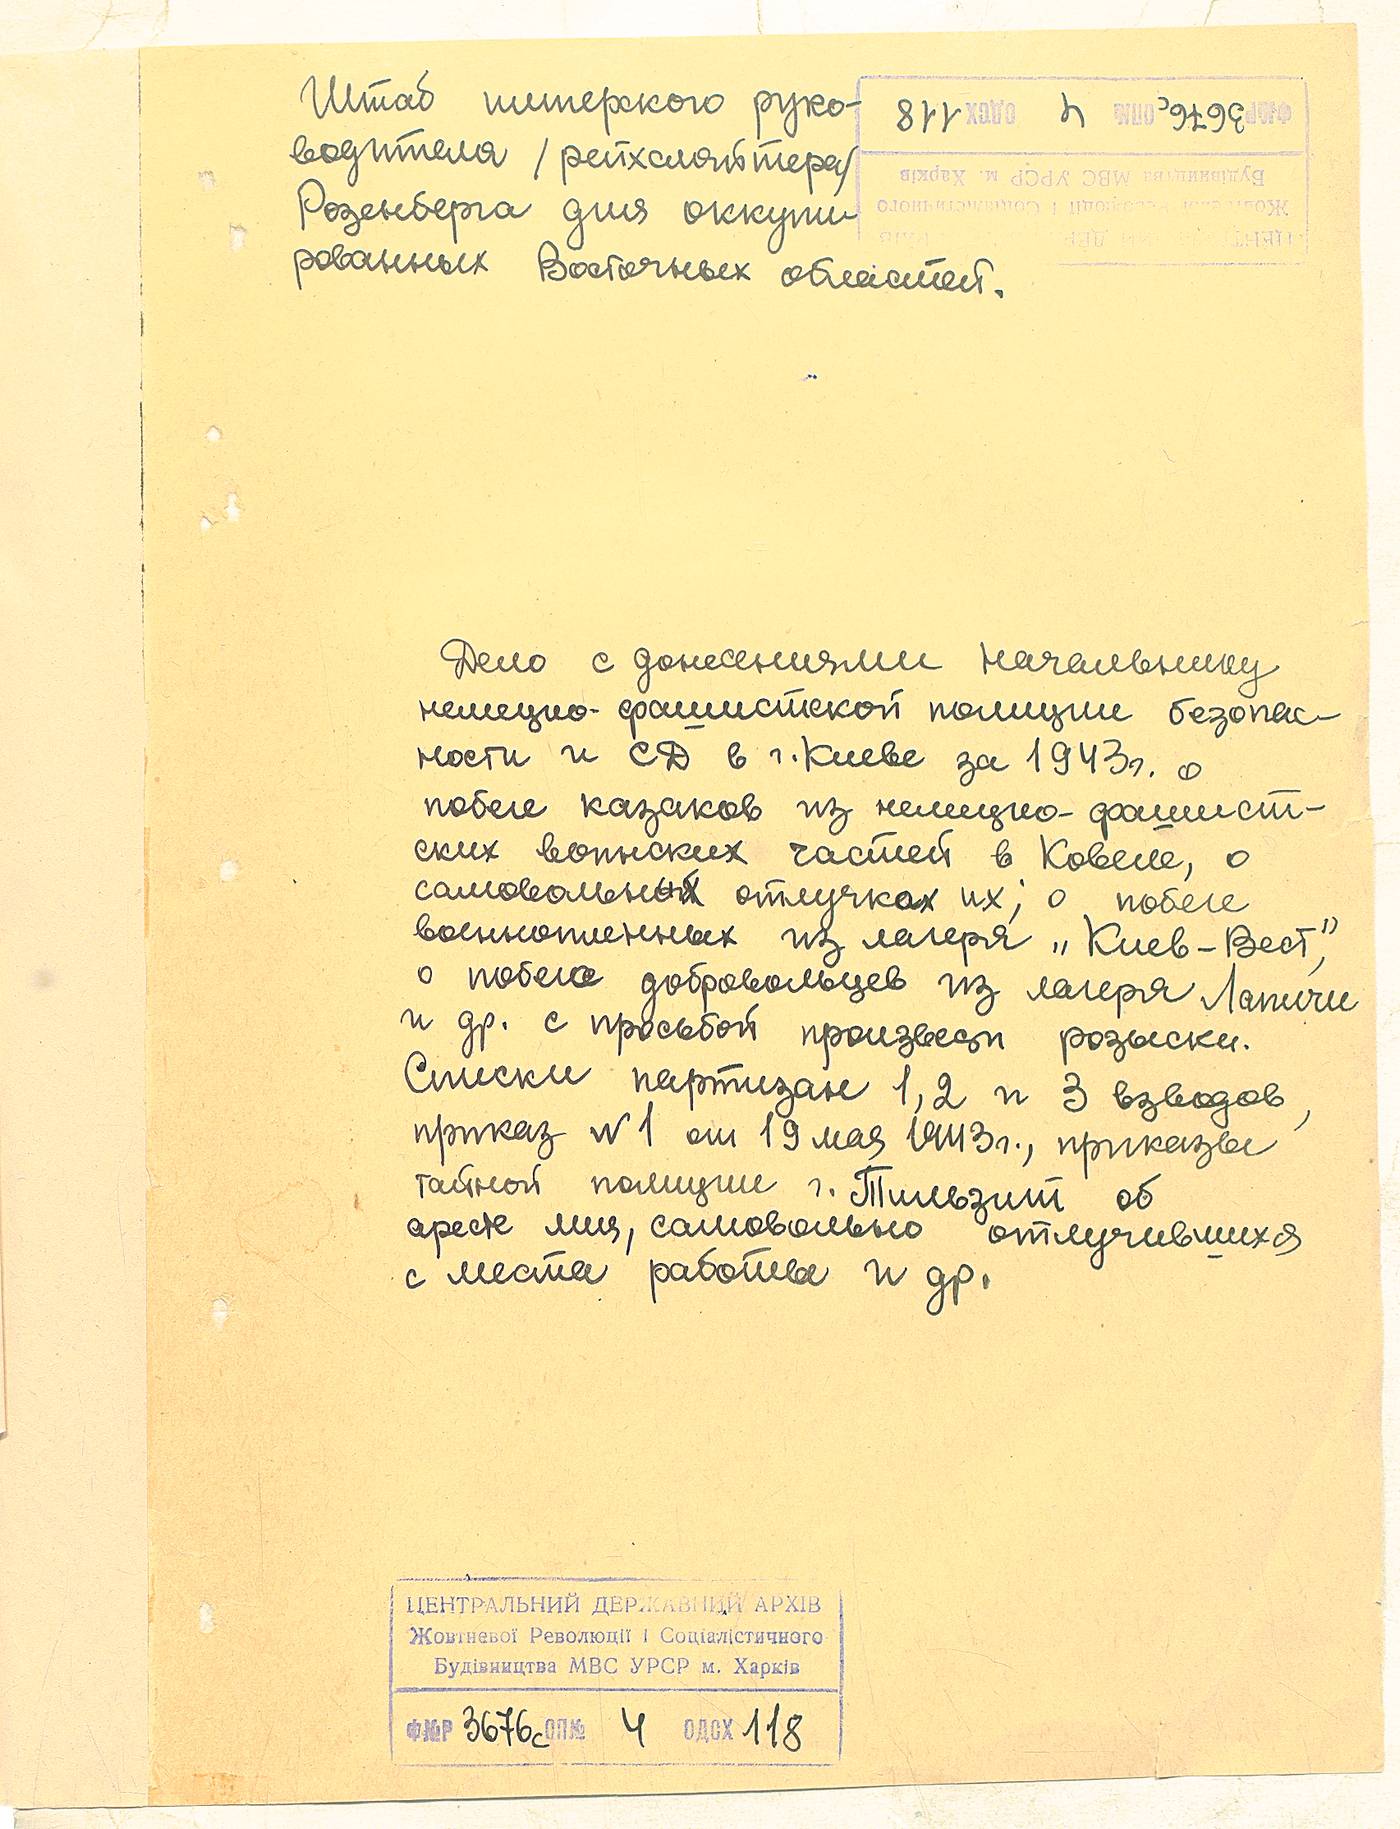 Штаб имперского руко-
водителя /рейхсляйтера/
Розенберга для оккупи-
рованных Восточных областей.
ФNР 3676с ОПN 4 ОДСХ 118
Будівництва МВС УРСР м. Харків
Жовтневої Революції і Соціалістичного
ЦЕНТРАЛЬНИЙ ДЕРЖАВНИЙ АРХІВ
Дело с донесениями начальнику
немецко-фашистской полиции безопас-
ности и СД в г. Киеве за 1943г. о
побеге казаков из немецко-фашист-
ских воинских частей в Ковеле, о
самовольных отлучках их; о побеге
военнопленных из лагеря „Киев-Вест",
о побеге добровольцев из лагеря Лапичи
и др. с просьбой произвести розыски.
Списки партизан 1, 2 и 3 взводов,
приказ N1 от 19 мая 1943г., приказы
тайной полиции г. Тильзит об
аресте лиц, самовольно отлучившихся
с места работы и др.
ЦЕНТРАЛЬНИЙ ДЕРЖАВНИЙ АРХІВ
Жовтневої Революції і Соціалістичного
Будівництва МВС УРСР м. Харків
Ф№Р 3676с ОП№ 4 ОДСХ 118